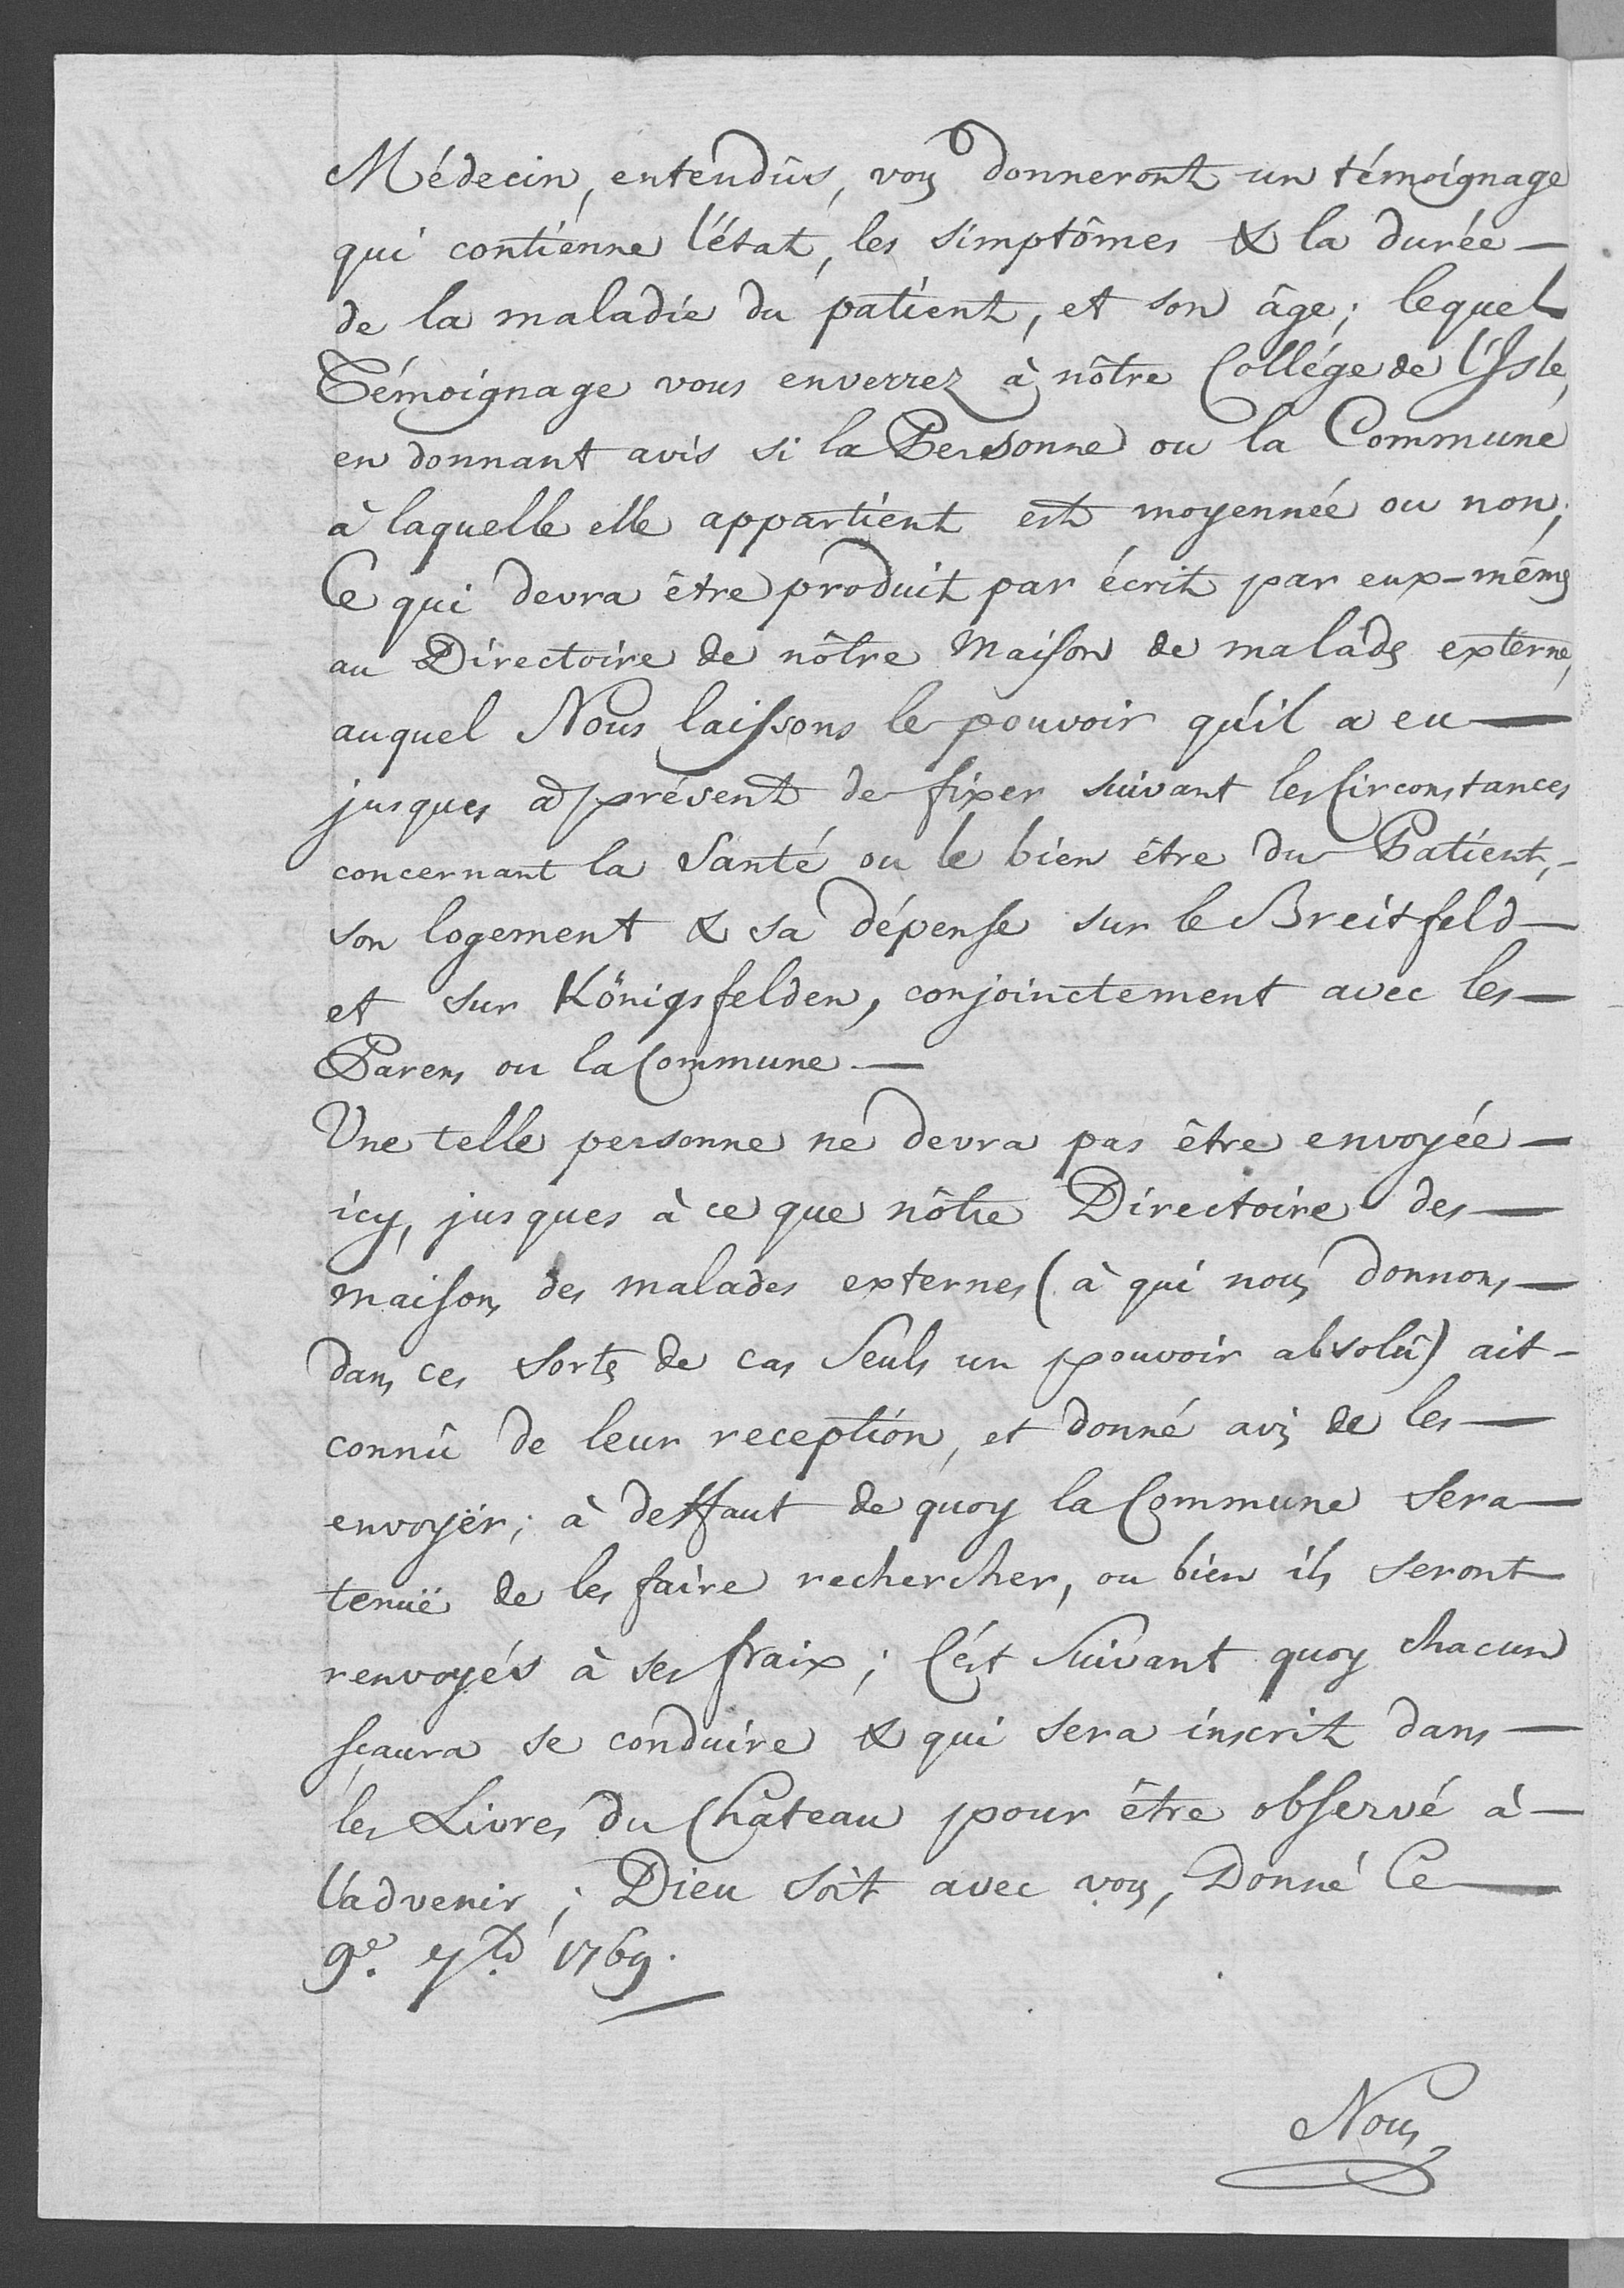 Médecin, entendûs, vous donneront un témoignage
qui contienne l'état, les simptômes & la durée —
de la maladie du patient, et son âge; lequel
Témoignage vous enverrez à nôtre Collége de l'Isle,
en donnant avis si la Personne ou la Commune
à laquelle elle appartient est moyennée ou non;
Ce qui devra être produit par écrit par eux-mêmes
au Directoire de nôtre Maison de malades externes,
auquel Nous laissons le pouvoir qu'il a eu —
jusques à présent de fixer suivant les Circonstances
concernant la Santé ou le bien être du Patient, -
son logement & sa dépense sur le Breitfeld —
et sur Königsfelden, conjoinctement avec les —
Parens ou la Commune —
Une telle personne ne devra pas être envoyée —
icy, jusques à ce que nôtre Directoire des —
maisons des malades externes (à qui nous donnons —
dans ces sortes de cas Seuls un pouvoir absolû) ait -
connû de leur reception, et donné avis de les —
envoyër; à deffaut de quoy la Commune sera —
tenuë de les faire rechercher, ou bien ils seront
renvoyés à ses fraix; C'est Suivant quoy chacun
sçaura se conduire & qui sera inscrit dans —
les Livres du Château pour être observé à —
l'advenir; Dieu soit avec vous, Donné Ce —
9e. 1769.
Nous